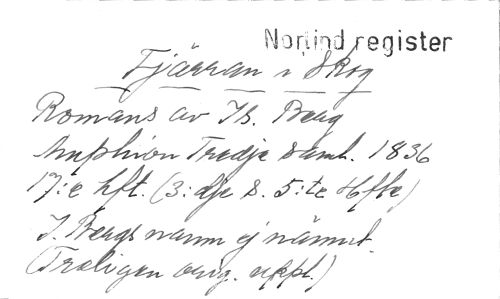 Norlind register
Fjärran i Skog
Romans av Is. Berg
Amphion Tredje Saml. 1836
17:e hft. (3:dje S. 5:te Hfte)
I. Bergs namn ej nämnt.
(Troligen orig. uppl.)